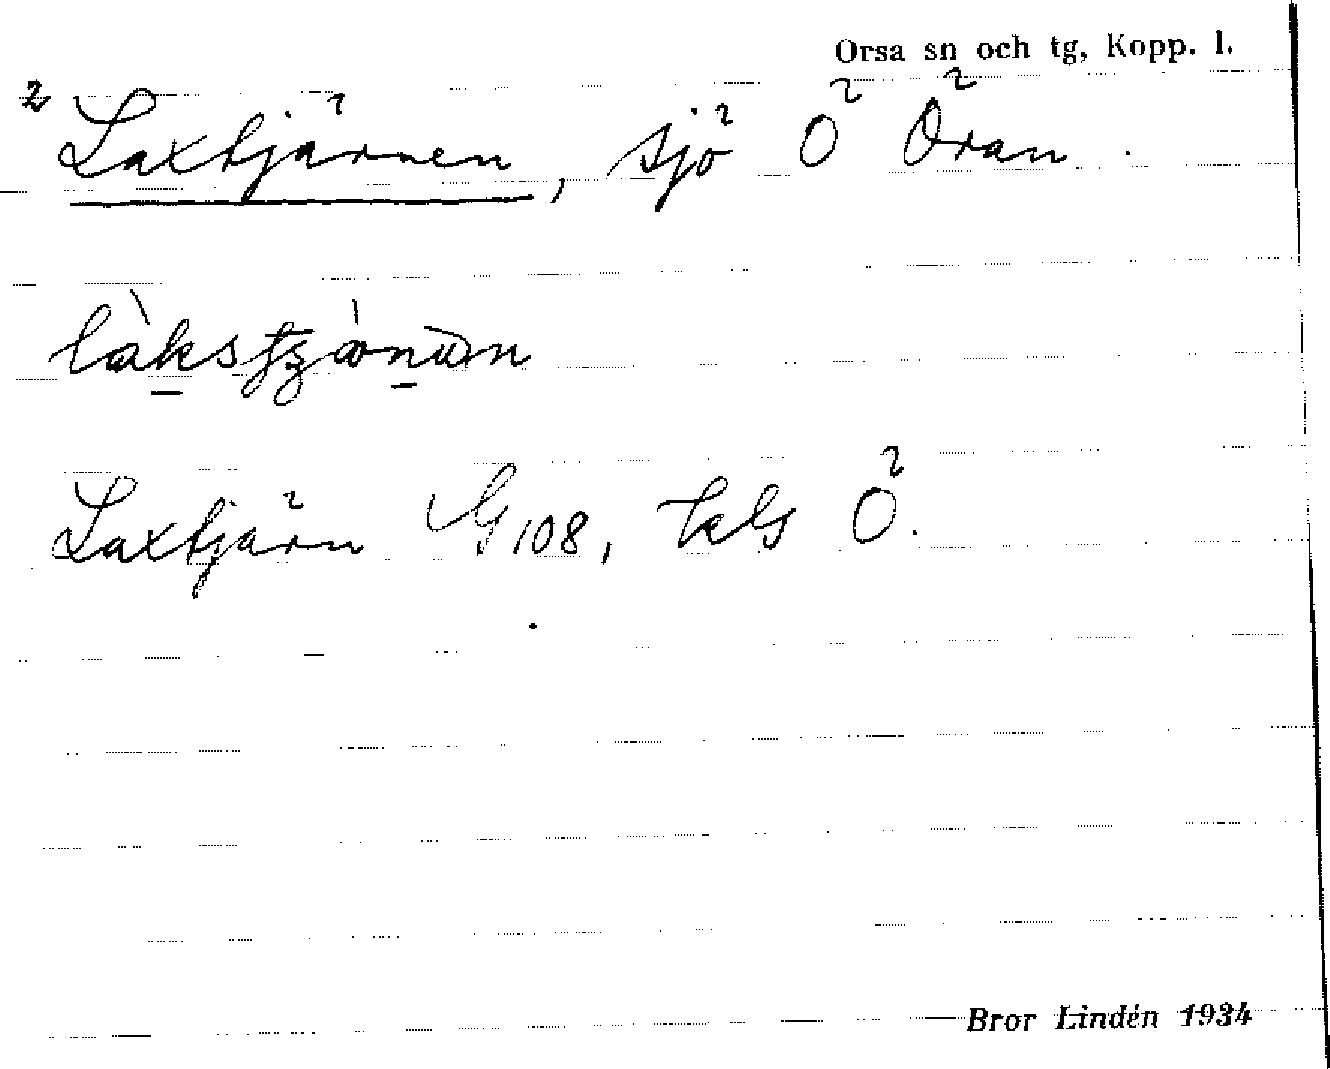 Orsa sn och tg, Kopp. l.
2 Laxtjärnen, sjö Ö Öran.
Laxtjärn G108, tels Ö.
Bror Lindén 1934